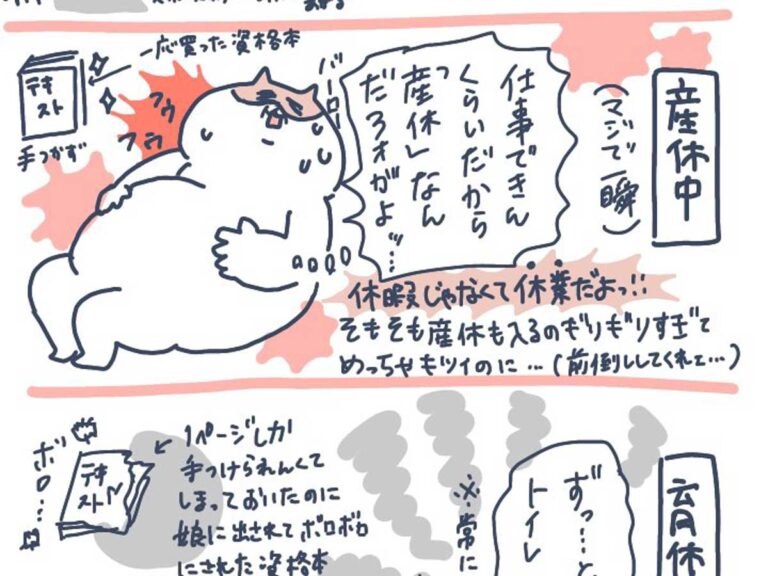 産休中
(マジで一瞬)
仕事できん
くらいだから
「産休」なん
だろォがよッ…
バーロー
一応買った資格本
テキ
スト
手つかず
フゥ
フゥ
休暇じゃなくて休業だよっ!!
そもそも産休も入るのギリギリすぎて
めっちゃキツイのに…(前倒ししてくれェ…)
育休
ずっ…と
トイレ
※常に
1ページしか
手つけられんくて
しまっておいたのに
娘に出されてボロボロ
にされた資格本
テキ
スト
ボロ…